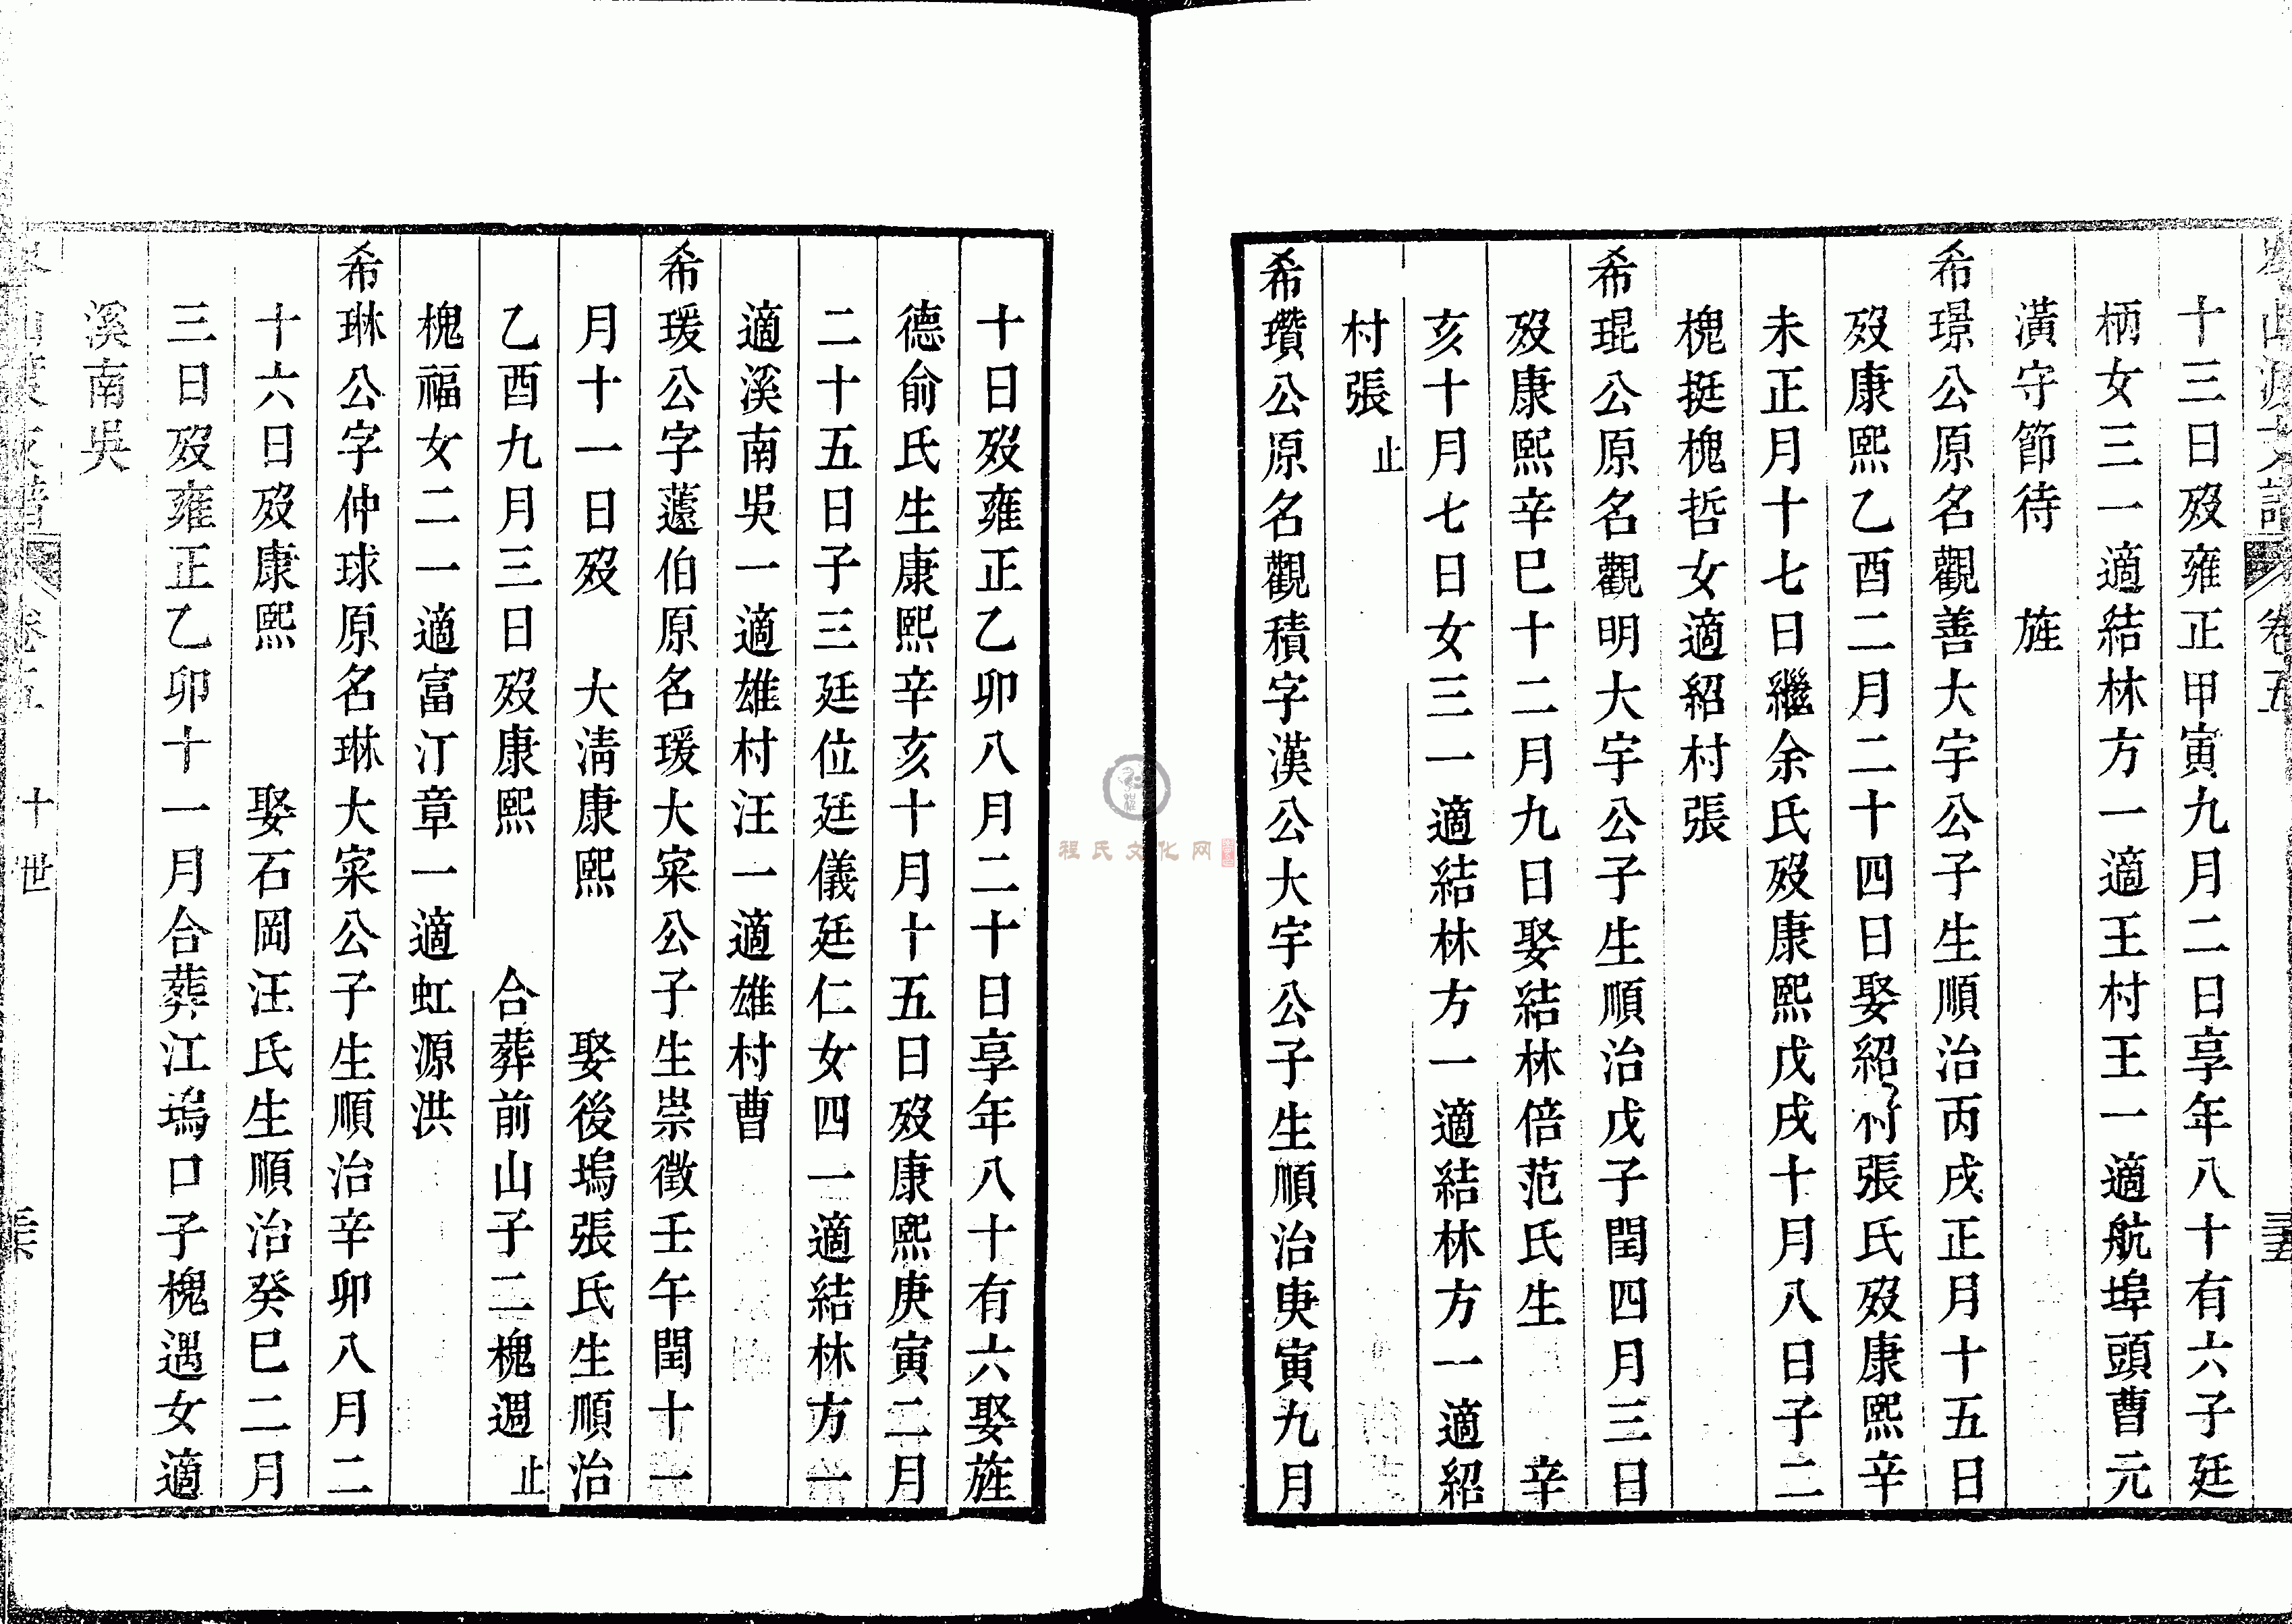 卷五
十三日歿雍正甲寅九月二日享年八十有六子廷
柄女三一適結林方一適王村王一適航埠頭曹元
潢守節待 旌
希璟公原名觀善大宇公子生順治丙戌正月十五日
歿康熙乙酉二月二十四日娶紹村張氏歿康熙辛
未正月十七日繼余氏歿康熙戊戌十月八日子二
槐挺槐哲女適紹村張
希琨公原名觀明大宇公子生順治戊子閏四月三日
歿康熙辛巳十二月九日娶結林倍范氏生 辛
亥十月七日女三一適結林方一適結林方一適紹
村張 止
希瓚公原名觀積字漢公大宇公子生順治庚寅九月
十日歿雍正乙卯八月二十日享年八十有六娶旌
德俞氏生康熙辛亥十月十五日歿康熙庚寅二月
二十五日子三廷位廷儀廷仁女四一適結林方一
適溪南吳一適雄村汪一適雄村曹
希瑗公字蘧伯原名瑗大寀公子生崇徵壬午閏十一
月十一日歿 大清康熙 娶後塢張氏生順治
乙酉九月三日歿康熙 合葬前山子二槐週 止
槐福女二一適富汀章一適虹源洪
希琳公字仲球原名琳大寀公子生順治辛卯八月二
十六日歿康熙 娶石岡汪氏生順治癸巳二月
三日歿雍正乙卯十一月合葬江塢口子槐遇女適
溪南吳
卷五 十世
程氏文化网